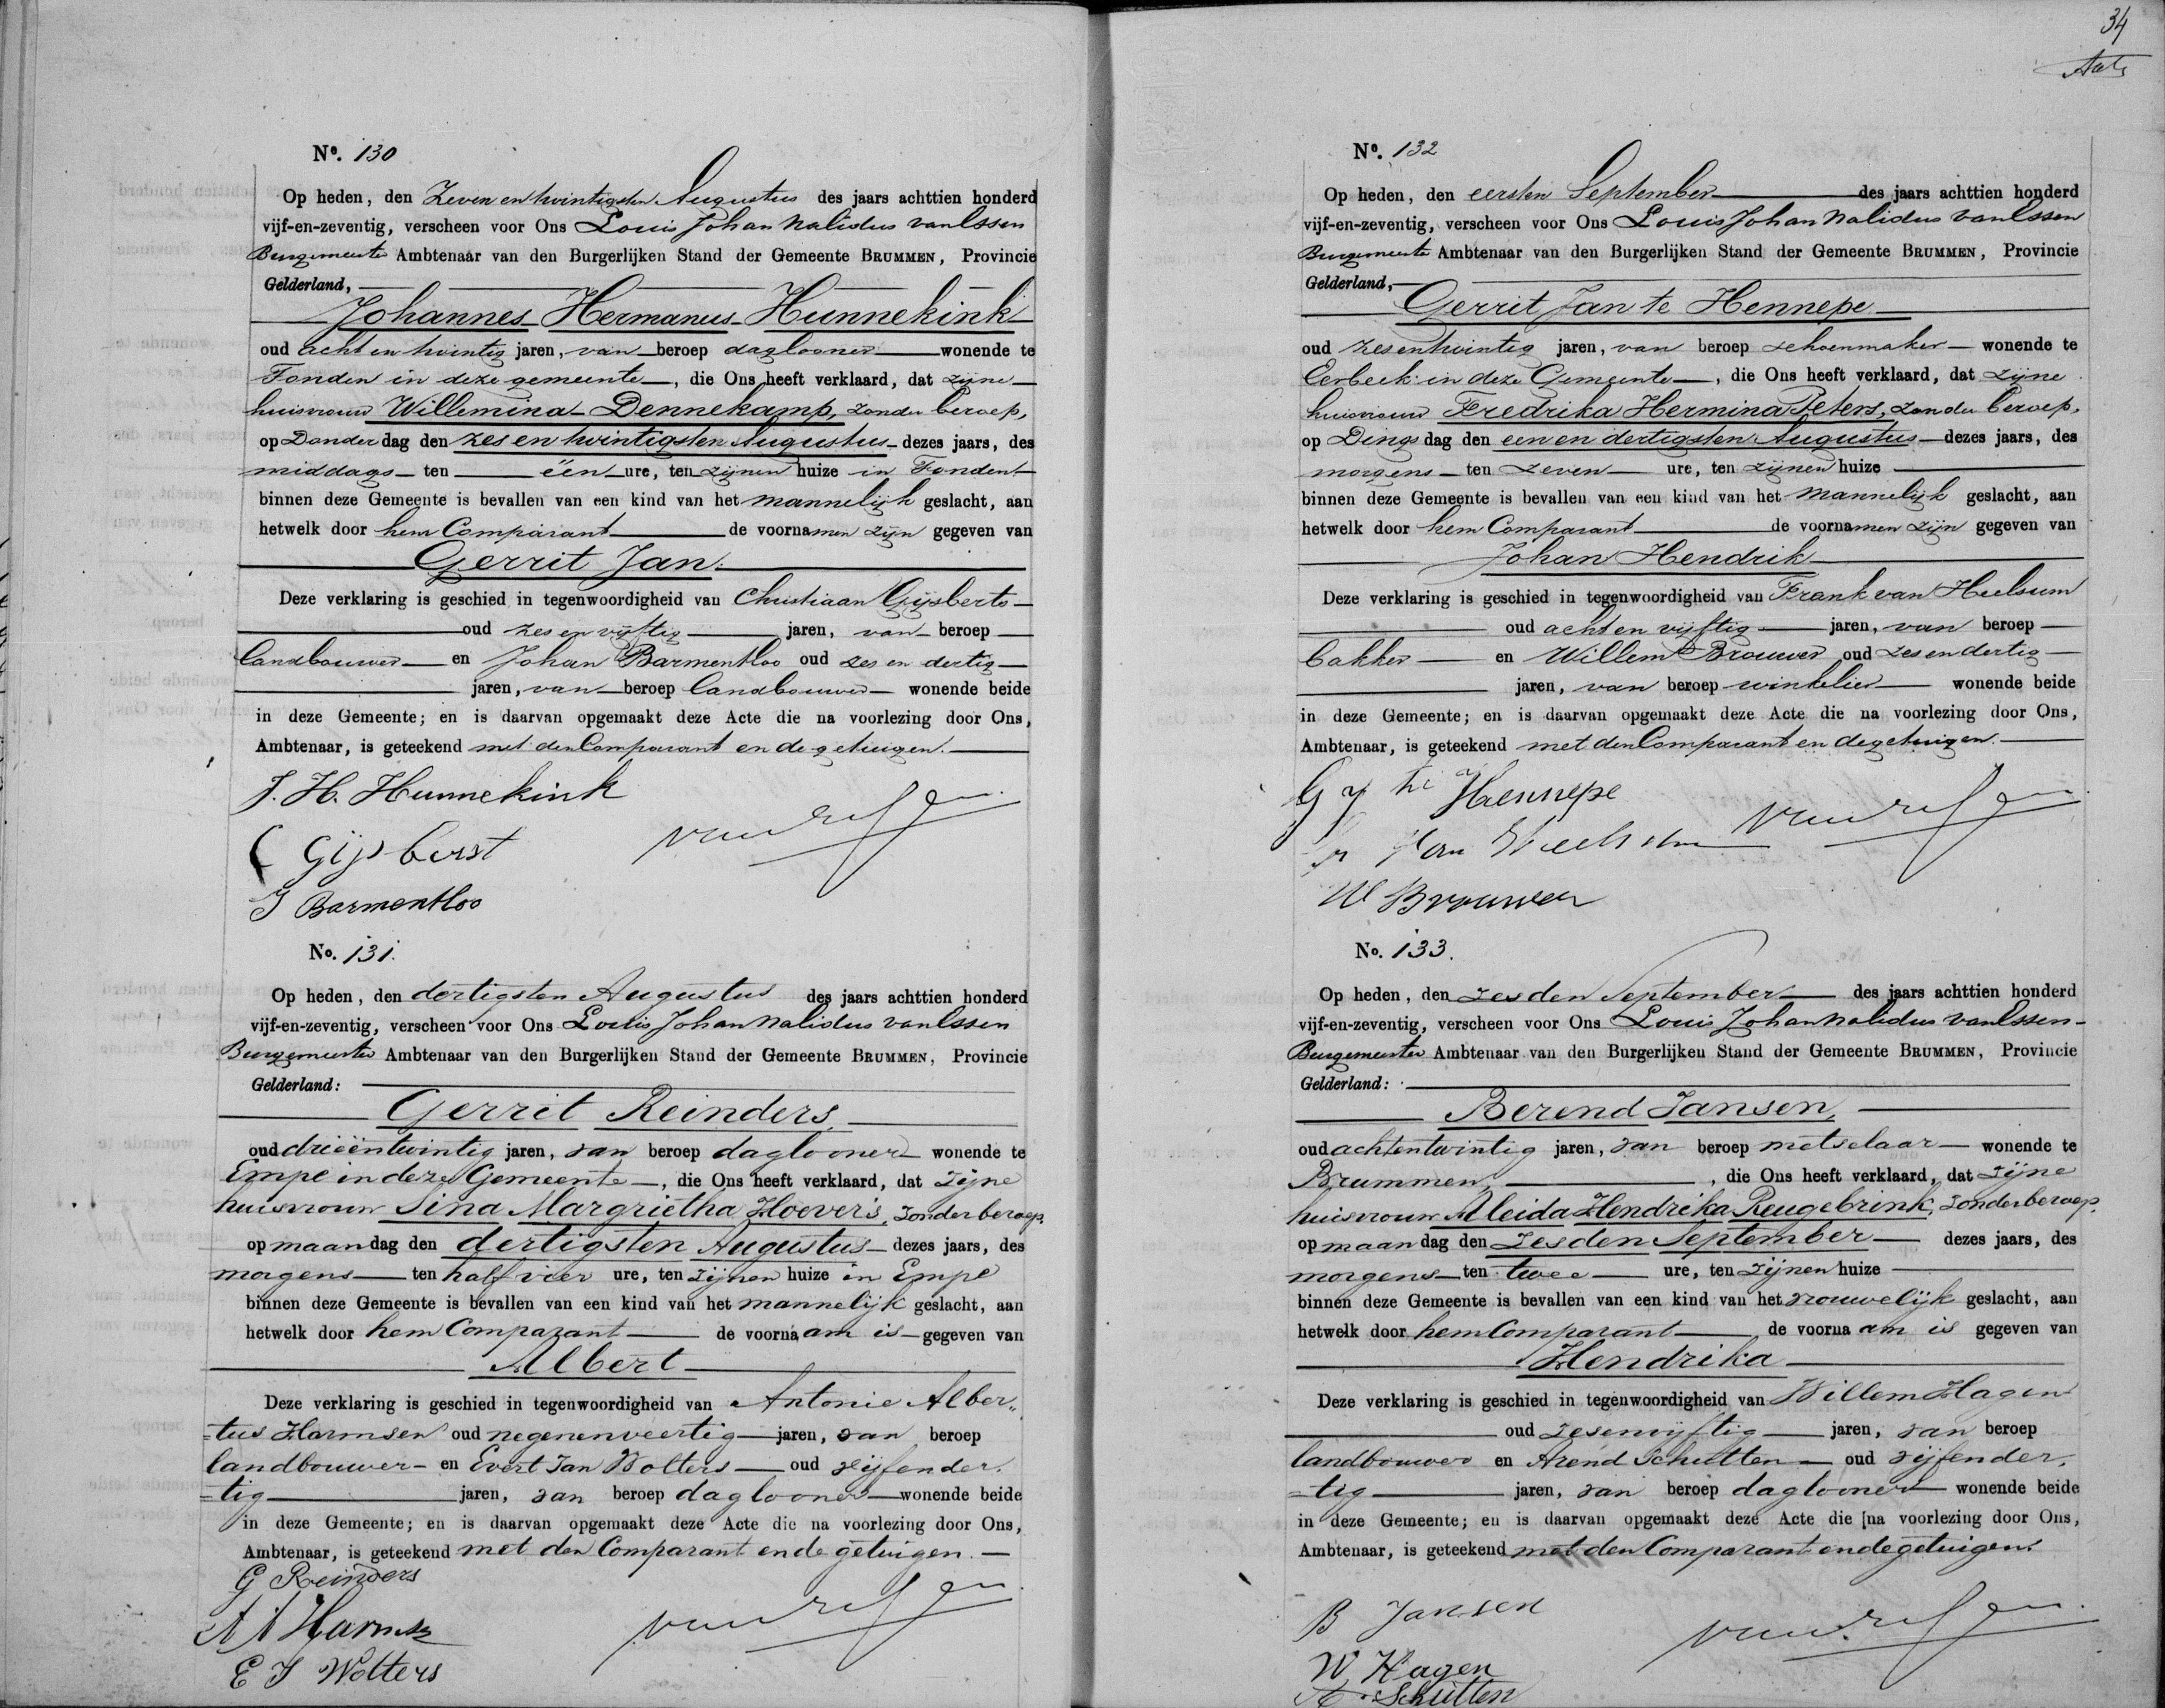 Nº. 130
Op heden, den Zeven en twintigsten Augustus des jaars achttien honderd
vijf-en-zeventig, verscheen voor Ons Louis Johan Nalidus van Essen
Burgemeester Ambtenaar van den Burgerlijken Stand der Gemeente BRUMMEN, Provincie
Gelderland,
Johannes Hermanus Hunnekink
oud acht en twintig jaren, van beroep daglooner wonende te
Tonden in deze gemeente, die Ons heeft verklaard, dat zijne
huisvrouw Willemina Dennekamp, zonder beroep,
op Donderdag den zes en twintigsten Augustus dezes jaars, des
middags ten één ure, ten zijnen huize in Tonden
binnen deze Gemeente is bevallen van een kind van het mannelijk geslacht, aan
hetwelk door hem Comparant de voornamen zijn gegeven van
Gerrit Jan.
Deze verklaring is geschied in tegenwoordigheid van Christiaan Gijsberts
oud zes en vijftig jaren, van beroep
landbouwer en Johan Barmentloo oud zes en dertig
jaren, van beroep landbouwer wonende beide
in deze Gemeente; en is daarvan opgemaakt deze Acte die na voorlezing door Ons,
Ambtenaar, is geteekend met den Comparant en de getuigen.
J. H. Hunnekink
C Gijsberst
van Essen
J Barmentloo
No. 131.
Op heden, den dertigsten Augustus des jaars achttien honderd
vijf-en-zeventig, verscheen voor Ons Louis Johan Nalidus van Essen
Burgemeester Ambtenaar van den Burgerlijken Stand der Gemeente BRUMMEN, Provincie
Gelderland:
Gerrit Reinders,
oud drieëntwintig jaren, van beroep daglooner wonende te
Empe in deze Gemeente, die Ons heeft verklaard, dat zijne
huisvrouw Sina Margrietha Hoevers, zonder beroep,
op maandag den dertigsten Augustus dezes jaars, des
morgens ten half vier ure, ten zijnen huize in Empe
binnen deze Gemeente is bevallen van een kind van het mannelijk geslacht, aan
hetwelk door hem Comparant de voornaam is gegeven van
Albert
Deze verklaring is geschied in tegenwoordigheid van Antonie Alber„
=tus Harmsen oud negenenveertig jaren, van beroep
landbouwer en Evert Jan Wolters oud vijfender„
=tig jaren, van beroep daglooner wonende beide
in deze Gemeente; en is daarvan opgemaakt deze Acte die na voorlezing door Ons,
Ambtenaar, is geteekend met den Comparant en de getuigen.
G Reinders
van Essen
A A Harmsen
E J Wolters
34
Nº. 132
Op heden, den eersten September des jaars achttien honderd
vijf-en-zeventig, verscheen voor Ons Louis Johan Nalidus van Essen
Burgemeester Ambtenaar van den Burgerlijken Stand der Gemeente BRUMMEN, Provincie
Gelderland,
Gerrit Jan te Hennepe
oud zesentwintig jaren, van beroep schoenmaker wonende te
Eerbeek in deze Gemeente, die Ons heeft verklaard, dat zijne
huisvrouw Fredrika Hermina Peters, zonder beroep,
op Dingsdag den een en dertigsten Augustus dezes jaars, des
morgens ten zeven ure, ten zijnen huize
binnen deze Gemeente is bevallen van een kind van het mannelijk geslacht, aan
hetwelk door hem Comparant de voornamen zijn gegeven van
Johan Hendrik
Deze verklaring is geschied in tegenwoordigheid van Frank van Heelsum
oud acht en vijftig jaren, van beroep
bakker en Willem Brouwer oud zes en dertig
jaren, van beroep winkelier wonende beide
in deze Gemeente; en is daarvan opgemaakt deze Acte die na voorlezing door Ons,
Ambtenaar, is geteekend met den Comparant en de getuigen.
G J te Hennepe
van Essen
van Heelsum
W Brouwer
No. 133.
Op heden, den zesden September des jaars achttien honderd
vijf-en-zeventig, verscheen voor Ons Louis Johan Nalidus van Essen
Burgemeester Ambtenaar van den Burgerlijken Stand der Gemeente BRUMMEN, Provincie
Gelderland:
Berend Jansen,
oud achtentwintig jaren, van beroep metselaar wonende te
Brummen, die Ons heeft verklaard, dat zijne
huisvrouw Aleida Hendrika Reugebrink, zonder beroep,
op maandag den zesden September dezes jaars, des
morgens ten twee ure, ten zijnen huize
binnen deze Gemeente is bevallen van een kind van het vrouwelijk geslacht, aan
hetwelk door hem Comparant de voornaam is gegeven van
Hendrika
Deze verklaring is geschied in tegenwoordigheid van Willem Hagen
oud zesenvijftig jaren, van beroep
landbouwer en Arend Schutten oud vijfender„
=tig jaren, van beroep daglooner wonende beide
in deze Gemeente; en is daarvan opgemaakt deze Acte die [na voorlezing door Ons,
Ambtenaar, is geteekend met den Comparant en de getuigen.
B Jansen
van Essen
W Hagen
A Schutten